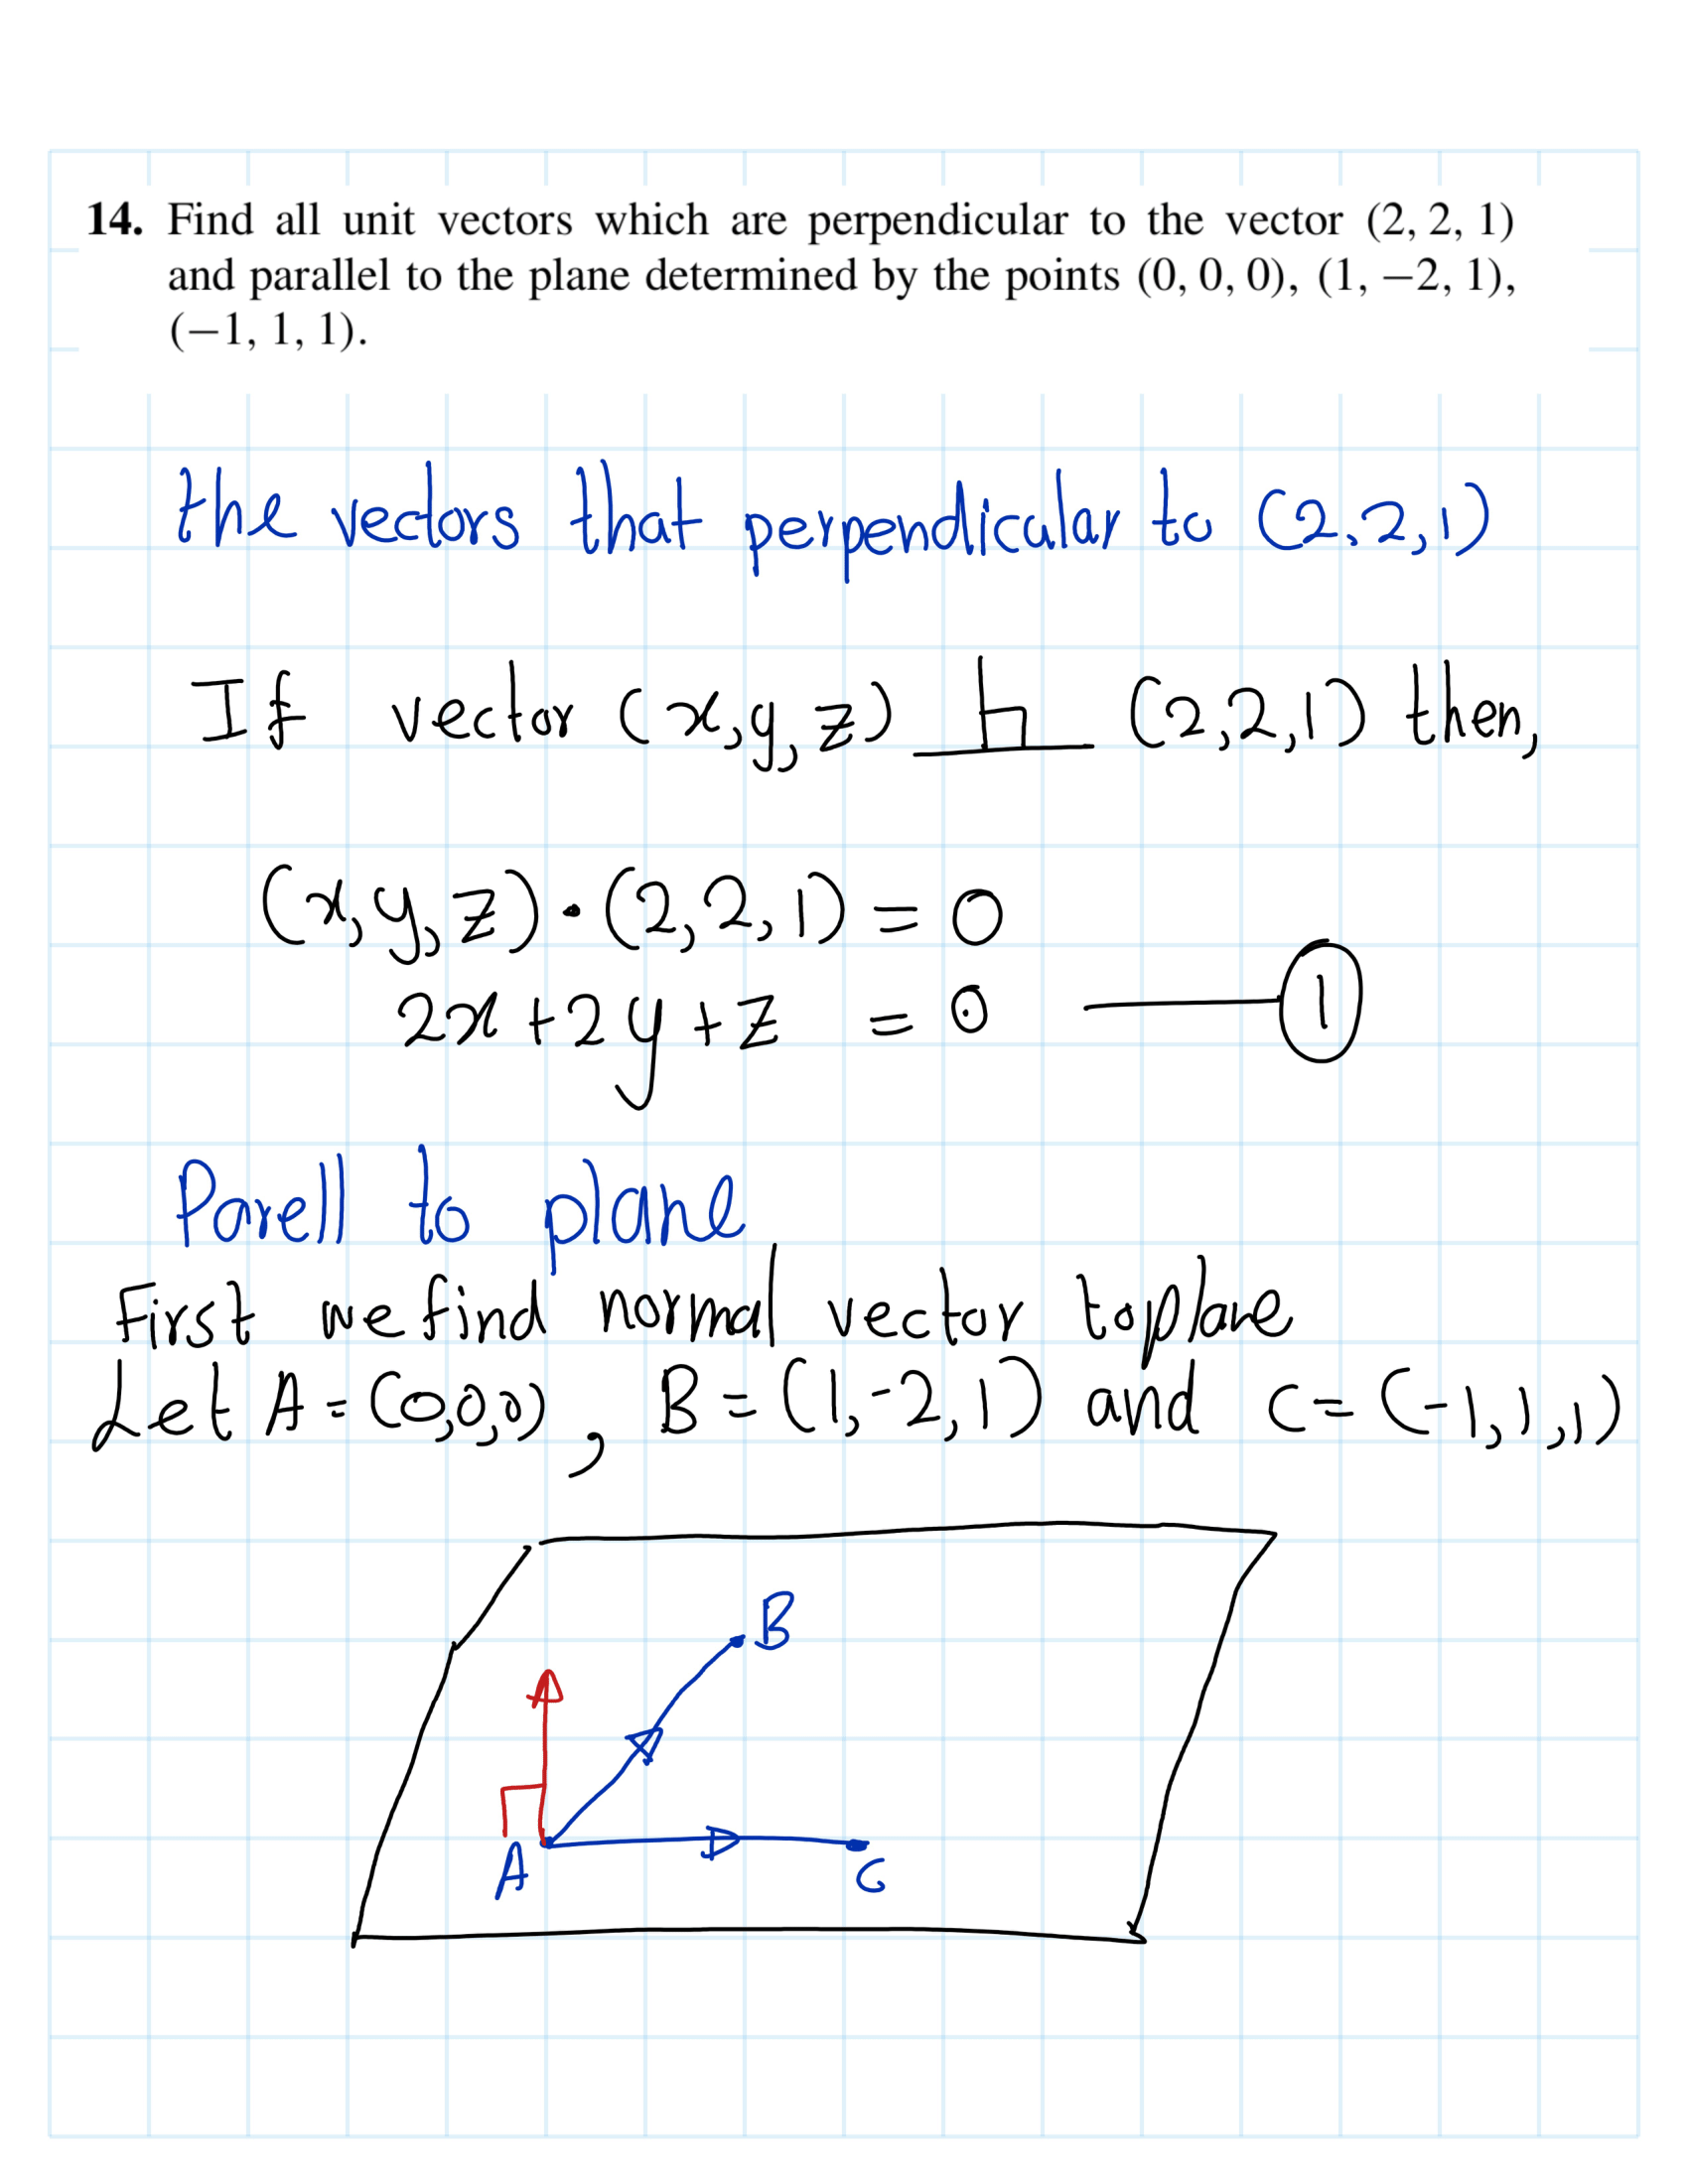 14. Find all unit vectors which are perpendicular to the vector (2, 2, 1)
and parallel to the plane determined by the points (0, 0, 0), (1, −2, 1),
(−1, 1, 1).
the vectors that perpendicular to (2,2,1)
If vector (x,y,z) ⊥ (2,2,1) then,
(x,y,z)•(2,2,1) = 0
2x+2y+z = 0 —— ①
Parell to plane
First we find normal vector to plane
Let A=(0,0,0), B=(1,-2,1) and C=(-1,1,1)
B
A
C